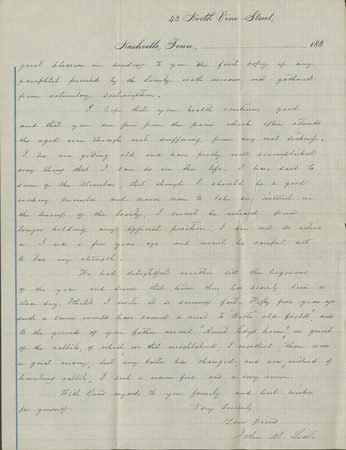 43 North Vine Street,
Nashville, Tenn. 188
great pleasure in sending to you the first copy of any
pamphlet printed by the Society with money not gathered
from voluntary subscription.
I hope that your health continues good
and that you are free from the pain which often attends
the aged even though not suffering from any real sickness.
I am getting old and have pretty well accomplished
every thing that I can do in this life. I have said to
some of the Members, that though I should be a good
working member and never cease to take an interest in
the success of the Society, I must be released from
longer holding any official position. I am not so active
as I was a few years ago and must be careful not
to tax my strength.
We had delightful weather till the beginning
of the year and since that time there has scarcely been a
clear day. While I write it is snowing fast. Fifty five years ago
such a snow would have caused a visit to "Watts' old field" and
to the grounds of your father around "Aunt home" in quest
of the rabbits, of which in that neighborhood I recollect there was
a great many, but my taste has changed, and now instead of
hunting rabbits, I seek a warm fire and a cosy room.
With kind regards to your family and best wishes
for yourself
Very Sincerely
Your friend
John M. Lea